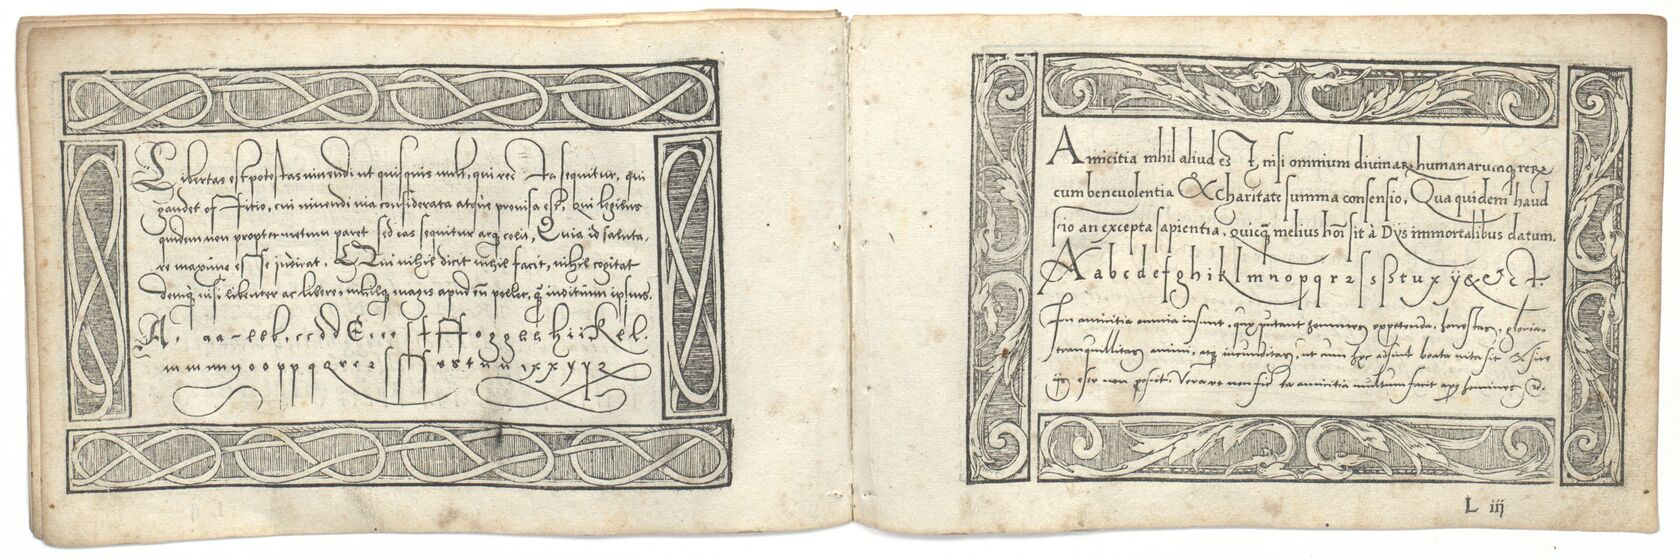 Libertas est potestas vivendi ut quisquis vult, qui rec ta sequitur, qui
gaudet of ficio, cui vivendi via considerata atque provisa est, qui legibus
quidem non propter metum paret sed eas sequitur atq; colit, Quia id saluta,
re maxime es se iudicat, Qui nihil dicit nihil facit, nihil cogitat
deniq; nisi libenter ac libere, nihilq; magis apud eū pollet, q̃ iuditium ipsius.
A. a a b b b. c c d d E. e e e ſ t ff o g g h h h i i K k l.
m m m n y o o p p q q r e r 2 ſ ſ ſſ s s t u ū 1 x x y y z
Amicitia nihil aliud es t, nisi omnium divinaꝝ humanarumq; rerꝝ
cum benevolentia & Charitate summa consensio, Qua quidem haud
scio an excepta sapientia, quicq̃ melius hoī sit à Dijs immortalibus datum.
A a b c d e f g h i k l m n o p q r 2 ſ s ß t u x ÿ & &
In amicitia omnia insunt, quæ putant homines expetenda, honestas, gloria,
tranquillitas animi, atq; iucunditas, ut cum hæc adsint beata vita sit & sine
ijs esse non possit. Verare non fic ta amicitia multum facit homines
L iij